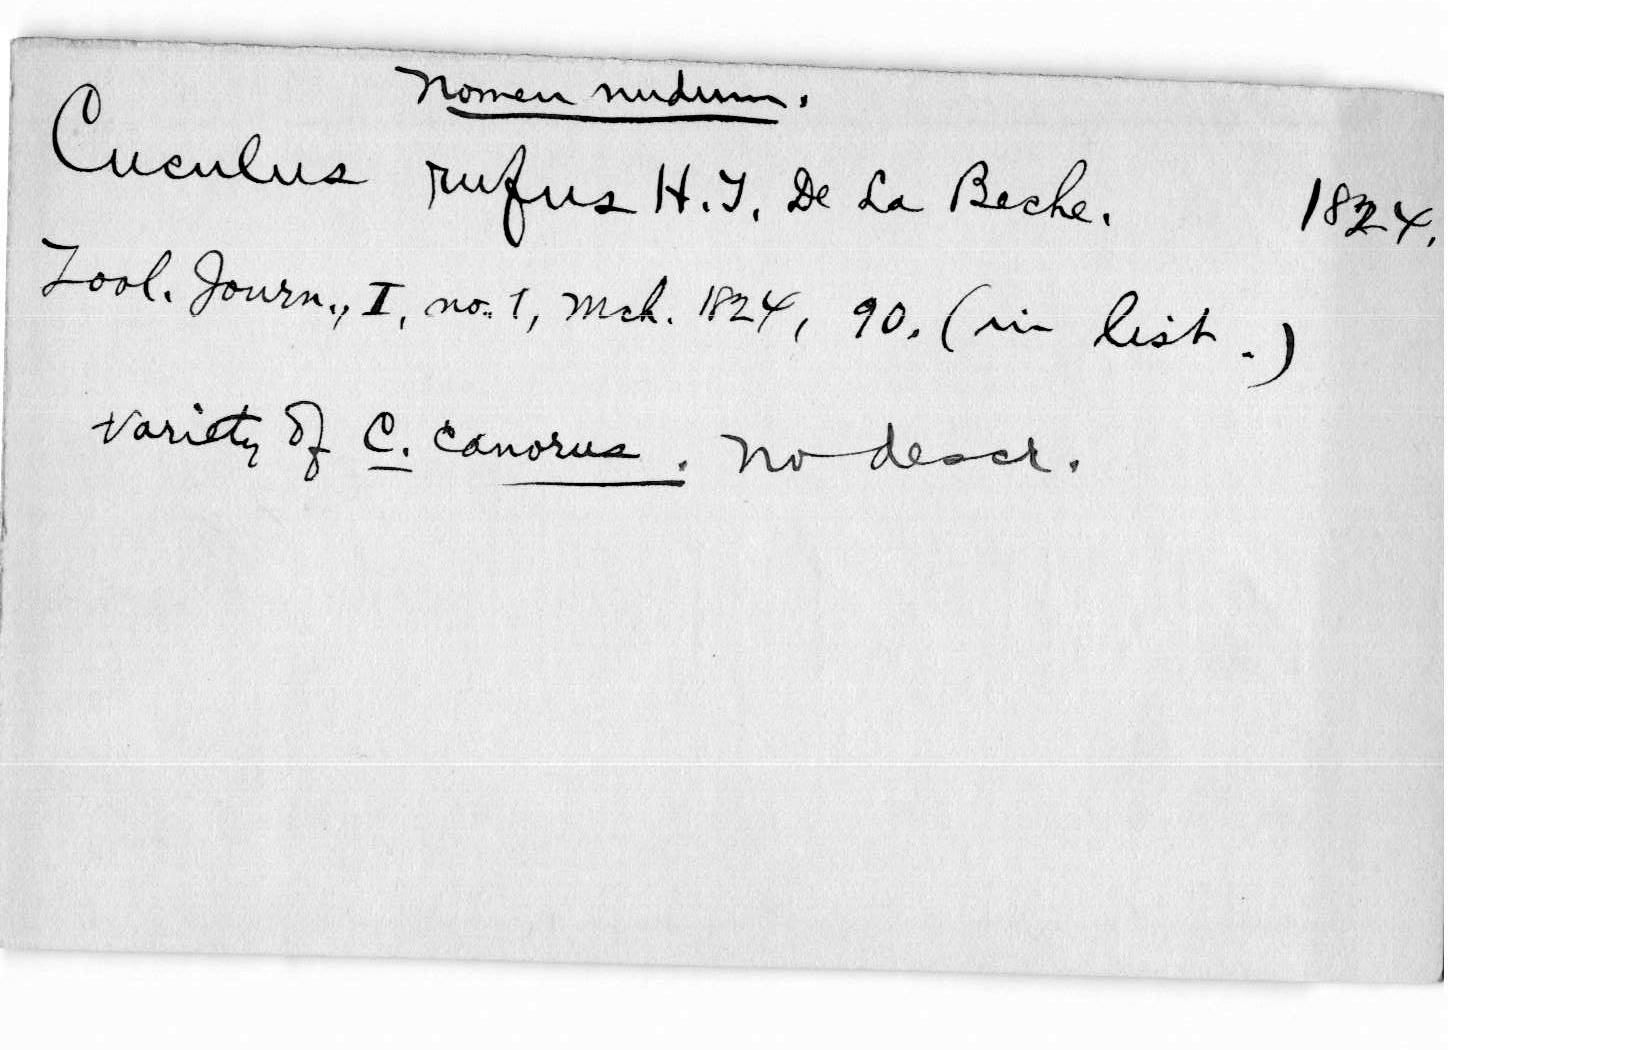 Nomen nudum.
Cuculus rufus H.T. De La Beche. 1824.
Zool. Journ., I, no. 1, Mch. 1824, 90. (in list.)
Variety of C. canorus. No descr.